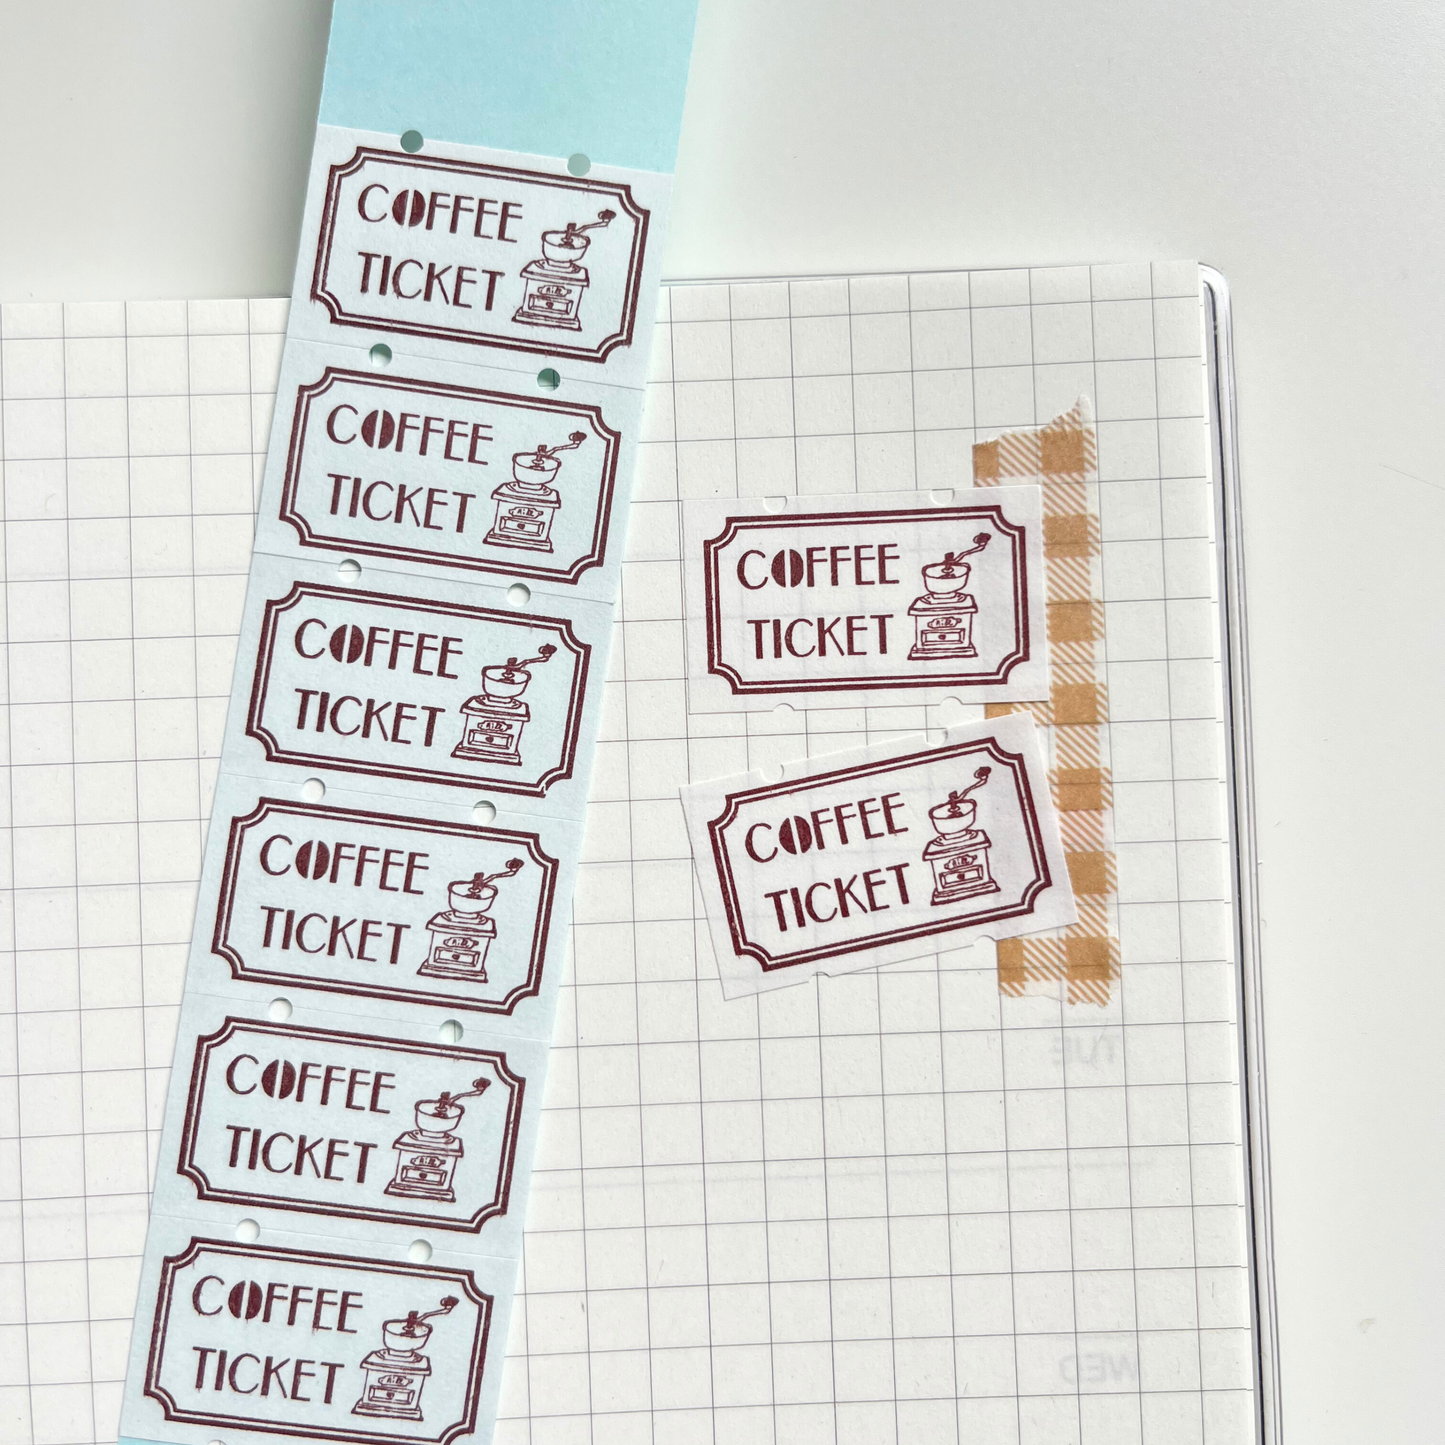 COFFEE
TICKET
COFFEE
TICKET
COFFEE
TICKET
COFFEE
TICKET
COFFEE
TICKET
COFFEE
TICKET
COFFEE
TICKET
COFFEE
TICKET
TUE
WED